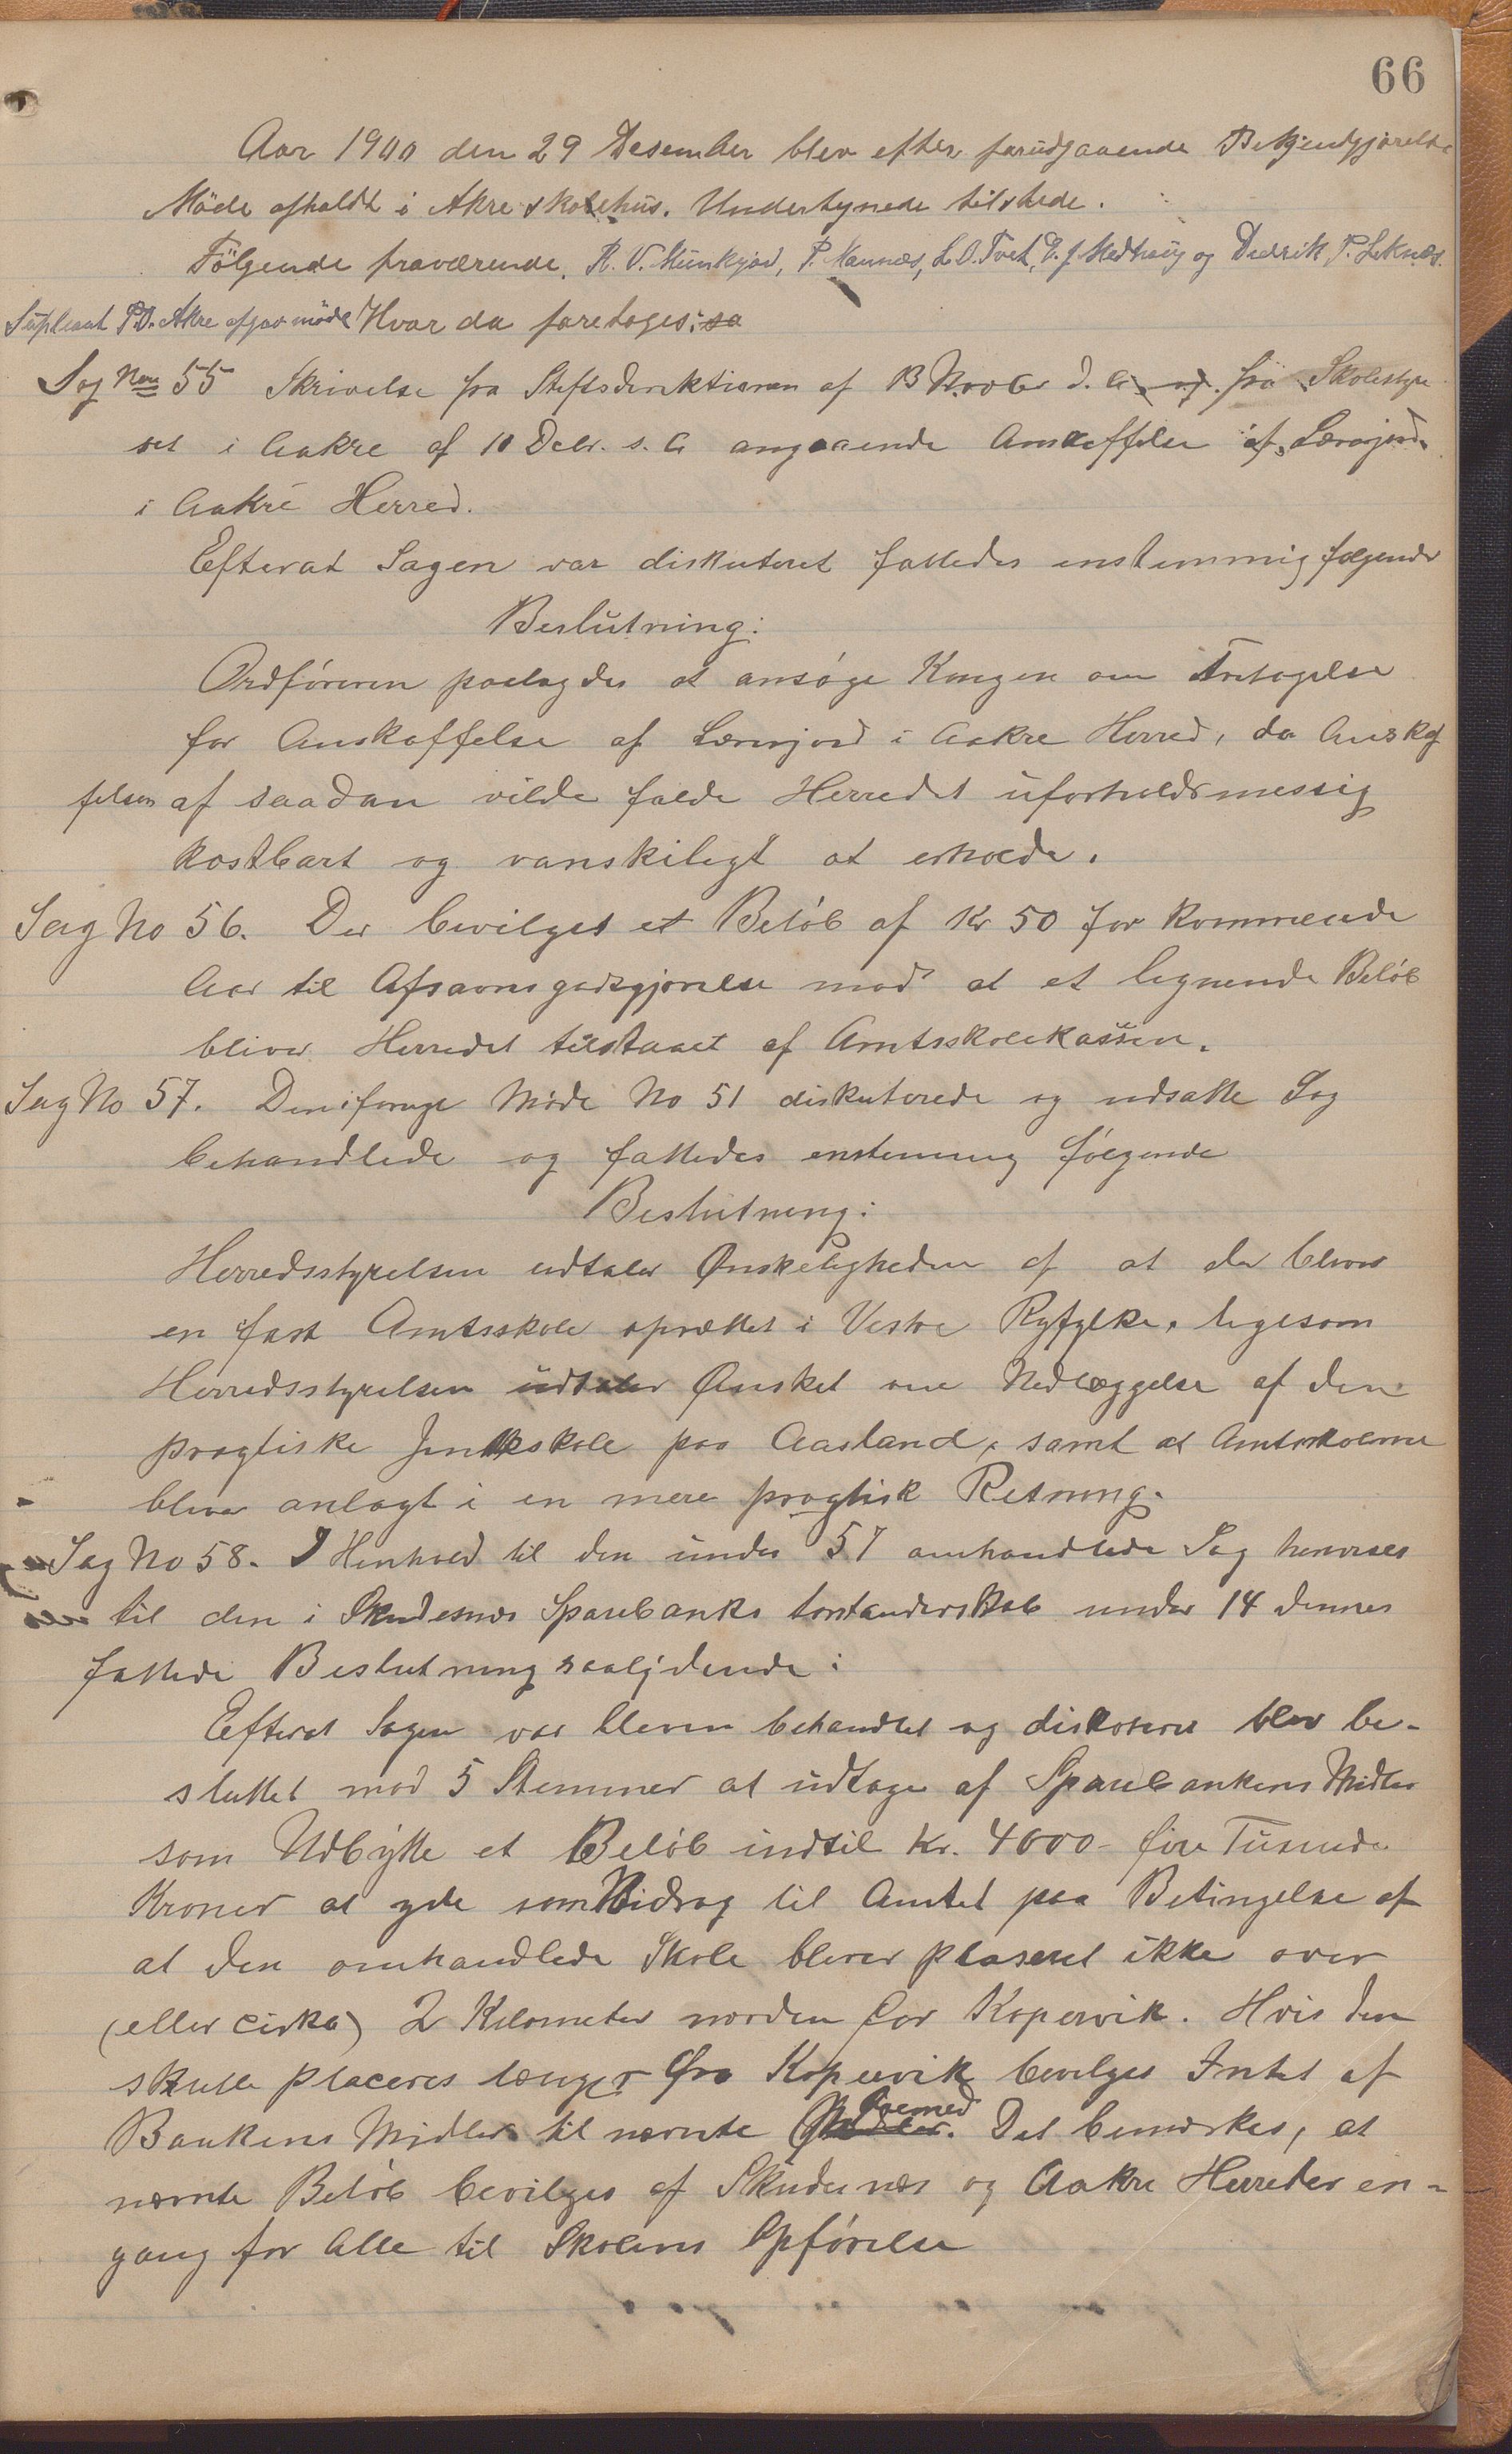 66
Aar 1900 den 29 Desember blev efter forudgaaende Bekjendtgjørelse
Möde afholdt i Akre skolehus. Undertegnede tilstede.
Fölgende fraværende, R. V. Munkejord, P. Mannes, L. O. Tvet, og Diedrik P. Leknes.
Supleant P. D. Akre afgav möde Hvor da foretoges: sa
Sag No 55 Skrivelse fra Stiftsdirektionen af 13 Novbr d. A. og fra Skolesty-
ret i Aakre af 10 Debr. s. A angaaende Anskaffelse af Lærerjord
i Aakre Herred.
Efterat Sagen var diskuteret fattedes enstemmig følgende
Beslutning:
Ordføreren paalagdes at ansøge Kongen om Fritagelse
for Anskaffelse af Lærerjord i Aakre Herred, da Anskaf
felsen af saadan vilde falde Herredet uforholdsmessig
kostbart og vanskeligt at erholde.
Sag No 56. Der bevilges et Beløb af Kr 50 for kommende
Aar til Afsavnsgodtgjørelse mod at et lignende Beløb
bliver Herredet tilstaaet af Amtsskolekassen.
Sag No 57. Den i forrige Møde No 51 diskuterede og udsatte Sag
behandlede og fattedes enstemmig følgende
Beslutning:
Herredsstyrelsen udtaler Ønskeligheden af at der bliver
en fast Amtsskole oprettet i Vestre Ryfylke, ligesom
Herredsstyrelsen udtaler Ønsket om Nedlæggelse af den
pragtiske Jenteskole paa Aasland, samt at Amtsskolerne
bliver anlagt i en mere pragtisk Retning.
Sag No 58. I Henhold til den under 57 omhandlede Sag henvises
til den i Skudesnes Sparebanks forstanderskab under 14 dennes
fattede Beslutning saalydende:
Efterat Sagen var bleven behandlet og diskoteret blev be-
sluttet mod 5 Stemmer at udtage af Sparebankens Midler
som Udbytte et Beløb indtil Kr. 4000- fire Tusinde
Kroner at yde som Bidrag til Amtet paa Betingelse af
at den omhandlede Skole bliver plaseret ikke over
(eller cirka) 2 Kilometer norden for Kopervik. Hvis den
skulle placeres længer fra Kopervik bevilges Intet af
Bankens Midler til nævnte Øiemed. Det bemærkes, at
nævnte Beløb bevilges af Skudesnes og Aakre Herreder en-
gang for Alle til Skolens Opførelse